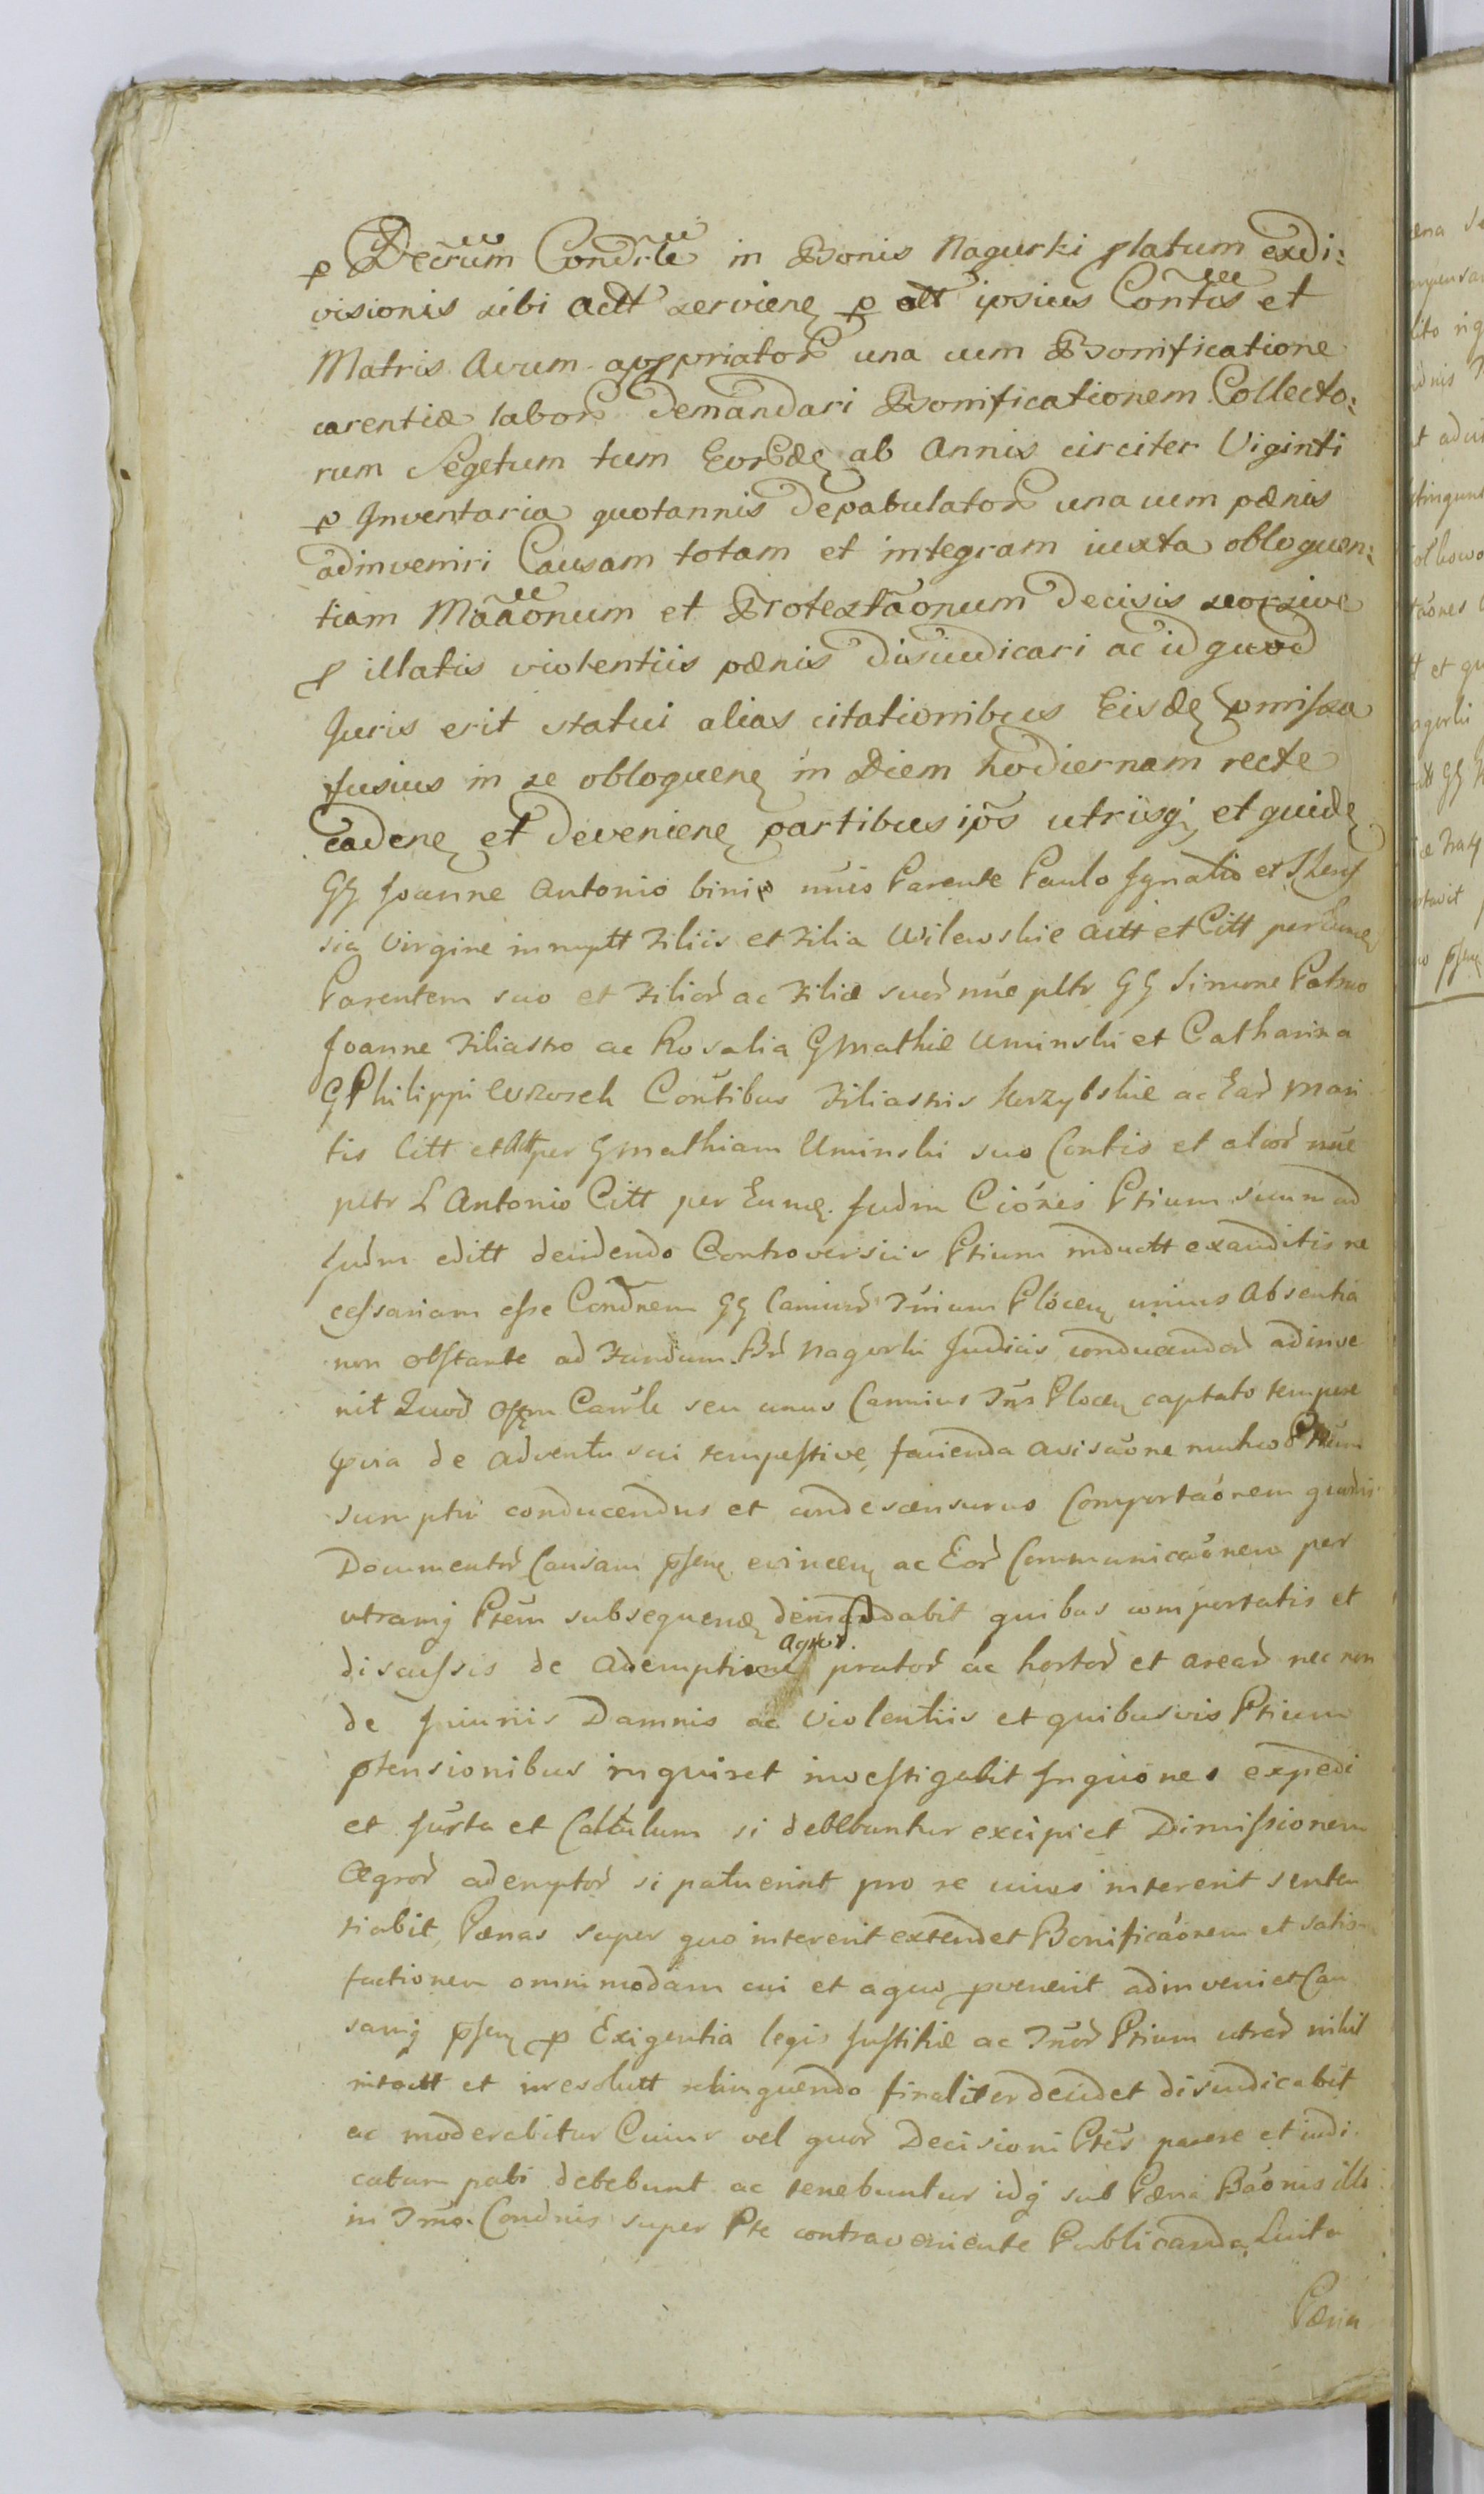 p Decrum Condrle in Bonis Nagurki platum exdi:
visionis sibi Actt serviene p alt ipsius Contis et
Matris Avum appriator una cum Bonificatione
carentiæ labor Demandari Bonificationem Collecto:
rum Segetum tum Eorde ab Annis circiter Viginti
p Inventaria quotannis Depabulator una cum pænis
adinveniri Causam totam et integram iuxta obloquen:
tiam Maãonum et Protestãonum Decisis seorsive
p illatis violentiis pænis Disiudicari ac id quod
Juris erit statui alias citationibus Eisde pmissa
fusius in se obloquene in Diem hodiernam recte
cadene et Deveniene partibus ips utrisq et quide
GG Joanne Antonio binis nuis Parente Paulo Ignatio et
sia Virgine innuptt Filiis et Filia Wilewskie Actt et Citt per Eunde
Parentem suo et Filior ac Filiæ suor nue pltr GG Simone Patruo
Joanne Filiastro ac Rosalia G Mathiæ Uminski et Catharina
G Philippi Contibus Filiastris ac Ear Mari
tis Citt et Att per G Mathiam Uminski suo Contis et alior nue
pltr L Antonio Citt per Eunde. Judm Ciónis Ptium suum ad
Judm editt decidendo Controversiis Ptium inductt exauditis ne
cessariam esse Condnem GG Camior Trium Plocen unius Absentia
non obstante ad Fundum Br Nagorki Judicis conducendor adinve
nit Quod Offm Camle seu unus Camius Tris Plocen captato tempore
pvia de Adventu sui tempestive facienda avisãone mutuo Ptium
sumptu conducendus et condescensurus Comportaónem quorvis
Documentor Causam psene evincen ac Eor Communicaónem per
utramq Ptem subsequene demandabit quibus comportatis et
discussis de Ademptione Agror. prator ac hortor et arear nec non
de Iniuriis Damnis ac Violentiis et quibusvis Ptium
ptensionibus inquiret investigabit Inquiónes expedi
et Jurta et Calculum si debebuntur excipiet Dimissionem
Agror ademptor si patuerint pro re cuius intererit senten
tiabit Pænas super quo intererit extendet Bonificaónem et satis
factionem omnimodam cui et a quo pvenerit adinveniet Cau
samq psen p Exigentia legis Justitiæ ac Truor Ptium utrar nihil
intactt et irresolutt relinquendo finaliter decidet disiudicabit
ac moderabitur Cuius vel quor Decisioni Ptes parere et iudi
catum pati debebunt ac tenebuntur idq sub Pæna Baónis illi
in Tmo. Condnis super Pte contraveniente Publicanda Luita
Pæna